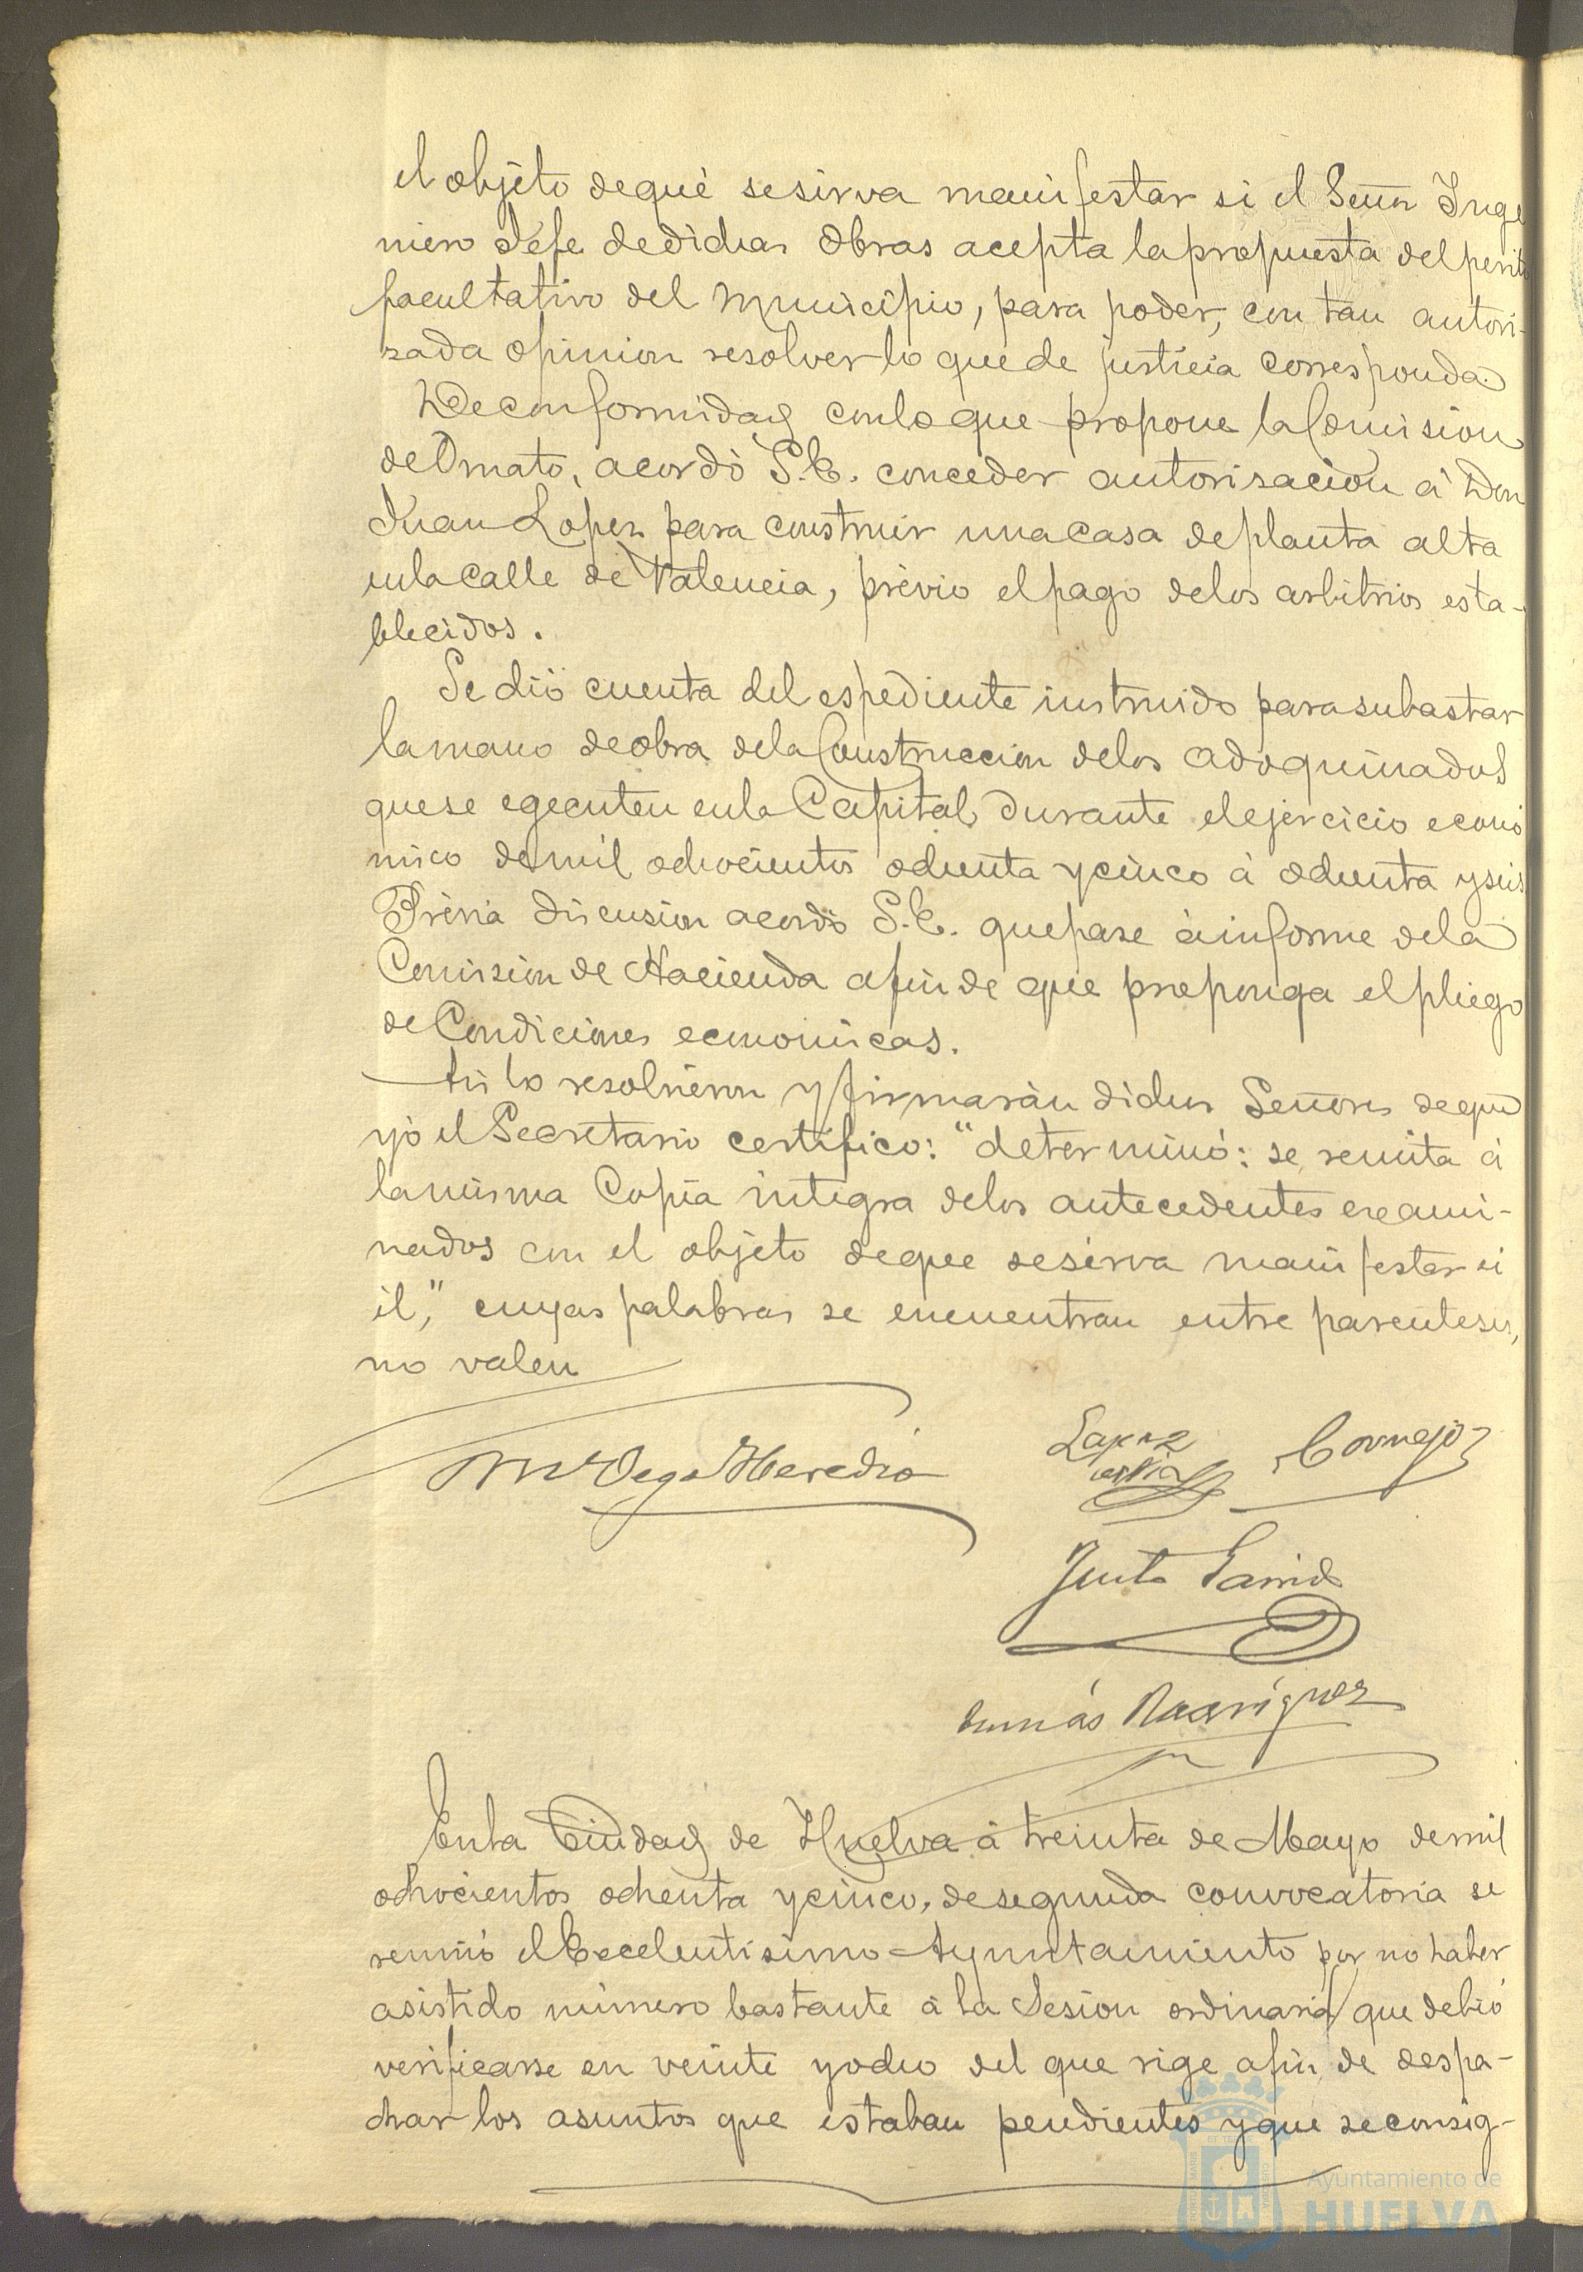 el objeto de que se sirva manifestar si el Señor Inge
niero Jefe de dichas Obras acepta la propuesta del perito
facultativo del Municipio, para poder, con tan autori-
zada opinion resolver lo que de justicia corresponda.
De conformidad con lo que propone la Comision
de Ornato, acordó S.E. conceder autorisacion á Don
Juan Lopez para construir una casa de planta alta
en la calle de Valencia, prévio el pago de los arbitrios esta-
blecidos.
Se dió cuenta del espediente instruido para subastar
la mano de obra de la Construccion de los adoquinados
que se egecuten en la Capital durante el ejercicio econó
mico de mil ochocientos ochenta y cinco á ochenta y seis
Prévia discusion acordó S.E. que pase á informe de la
Comision de Hacienda a fin de que proponga el pliego
de Condiciones economicas.
Asi lo resolvieron y firmarán dichos Señores de que
yo el Secretario certifico: "determinó: se remita á
la misma Copia integra de los antecedentes exami-
nados con el objeto de que se sirva manifestar si
el," cuyas palabras se encuentran entre parentesis,
no valen
M Vega Heredia
Lopez
Cornejo
Justo Garrido
Tomás Rodríguez
En la Ciudad de Huelva á treinta de Mayo de mil
ochocientos ochenta y cinco, de segunda convocatoria se
reunió el Excelentisimo Ayuntamiento por no haber
asistido número bastante á la Sesion ordinaria que debió
verificarse en veinte y ocho del que rige a fin de despa-
char los asuntos que estaban pendientes y que se consig-
Ayuntamiento de
HUELVA